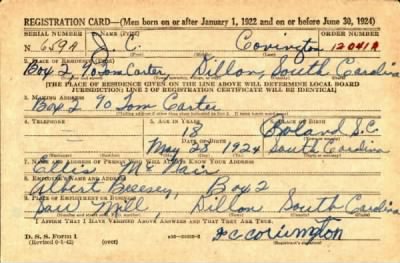 REGISTRATION CARD—(Men born on or after January 1, 1922 and on or before June 30, 1924)
SERIAL NUMBER 1. NAME (Print) ORDER NUMBER
N 659A J. C. Covington 12041A
2. PLACE OF RESIDENCE (Print)
Box 2, % Tom Carter, Dillon, South Carolina
[THE PLACE OF RESIDENCE GIVEN ON THE LINE ABOVE WILL DETERMINE LOCAL BOARD
JURISDICTION; LINE 2 OF REGISTRATION CERTIFICATE WILL BE IDENTICAL]
3. MAILING ADDRESS
Box 2 % Tom Carter
4. TELEPHONE 5. AGE IN YEARS 6. PLACE OF BIRTH
18
DATE OF BIRTH S.C.
May 23 1924 South Carolina
7. NAME AND ADDRESS OF PERSON WHO WILL ALWAYS KNOW YOUR ADDRESS
Ellis McNair
8. EMPLOYER'S NAME AND ADDRESS
Albert Breesey, Box 2
9. PLACE OF EMPLOYMENT OR BUSINESS
Mill, Dillon South Carolina
I AFFIRM THAT I HAVE VERIFIED ABOVE ANSWERS AND THAT THEY ARE TRUE.
D. S. S. Form 1
(Revised 6-1-42) (over)
J C Covington
(Registrant's signature)